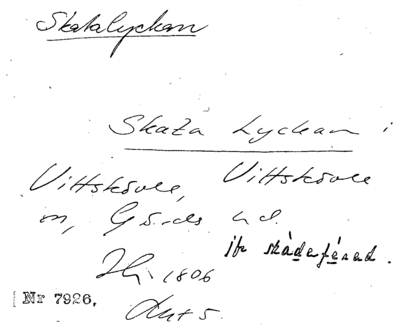 Skatalyckan
Skata Lyckan i
Vittskövle, Vittskövle
sn, Gärds hd.
jfr skàdefénad.
Hi 1806
Nr 7926.
Akt 5.